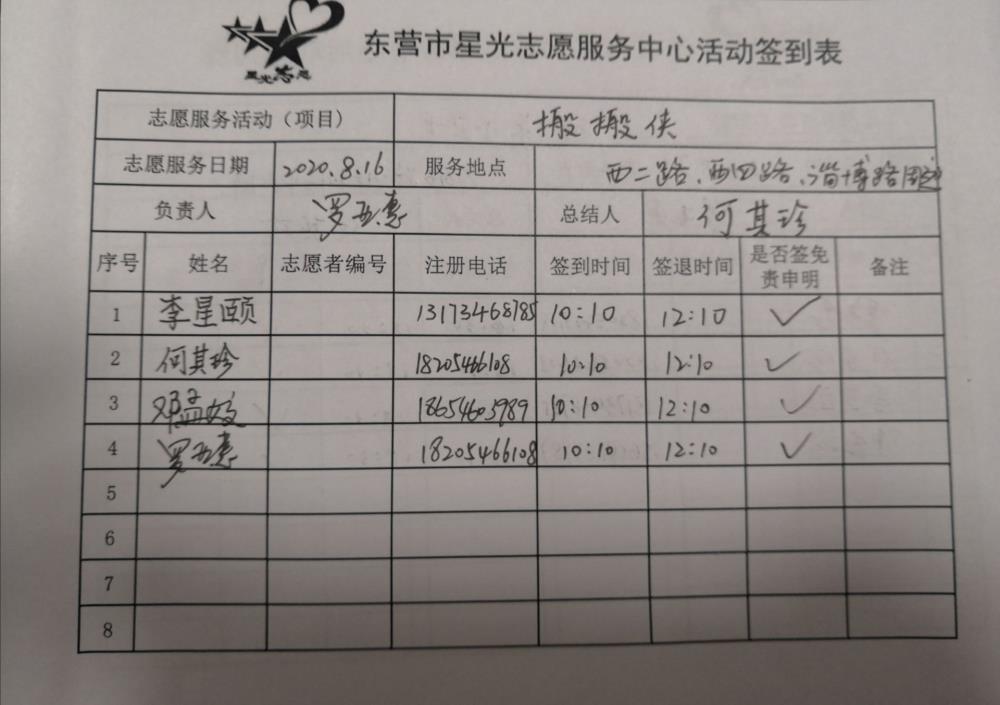 星光志愿
东营市星光志愿服务中心活动签到表
志愿服务活动（项目） 搬搬侠
志愿服务日期 2020.8.16 服务地点 西二路、西四路、淄博路周边
负责人 罗亚惠 总结人 何其珍
序号 姓名 志愿者编号 注册电话 签到时间 签退时间 是否签免责申明 备注
1 李星颐 13173468785 10:10 12:10 ✓
2 何其珍 18205466108 10:10 12:10 ✓
3 邓孟姣 18654603989 10:10 12:10 ✓
4 罗亚惠 18205466108 10:10 12:10 ✓
5
6
7
8